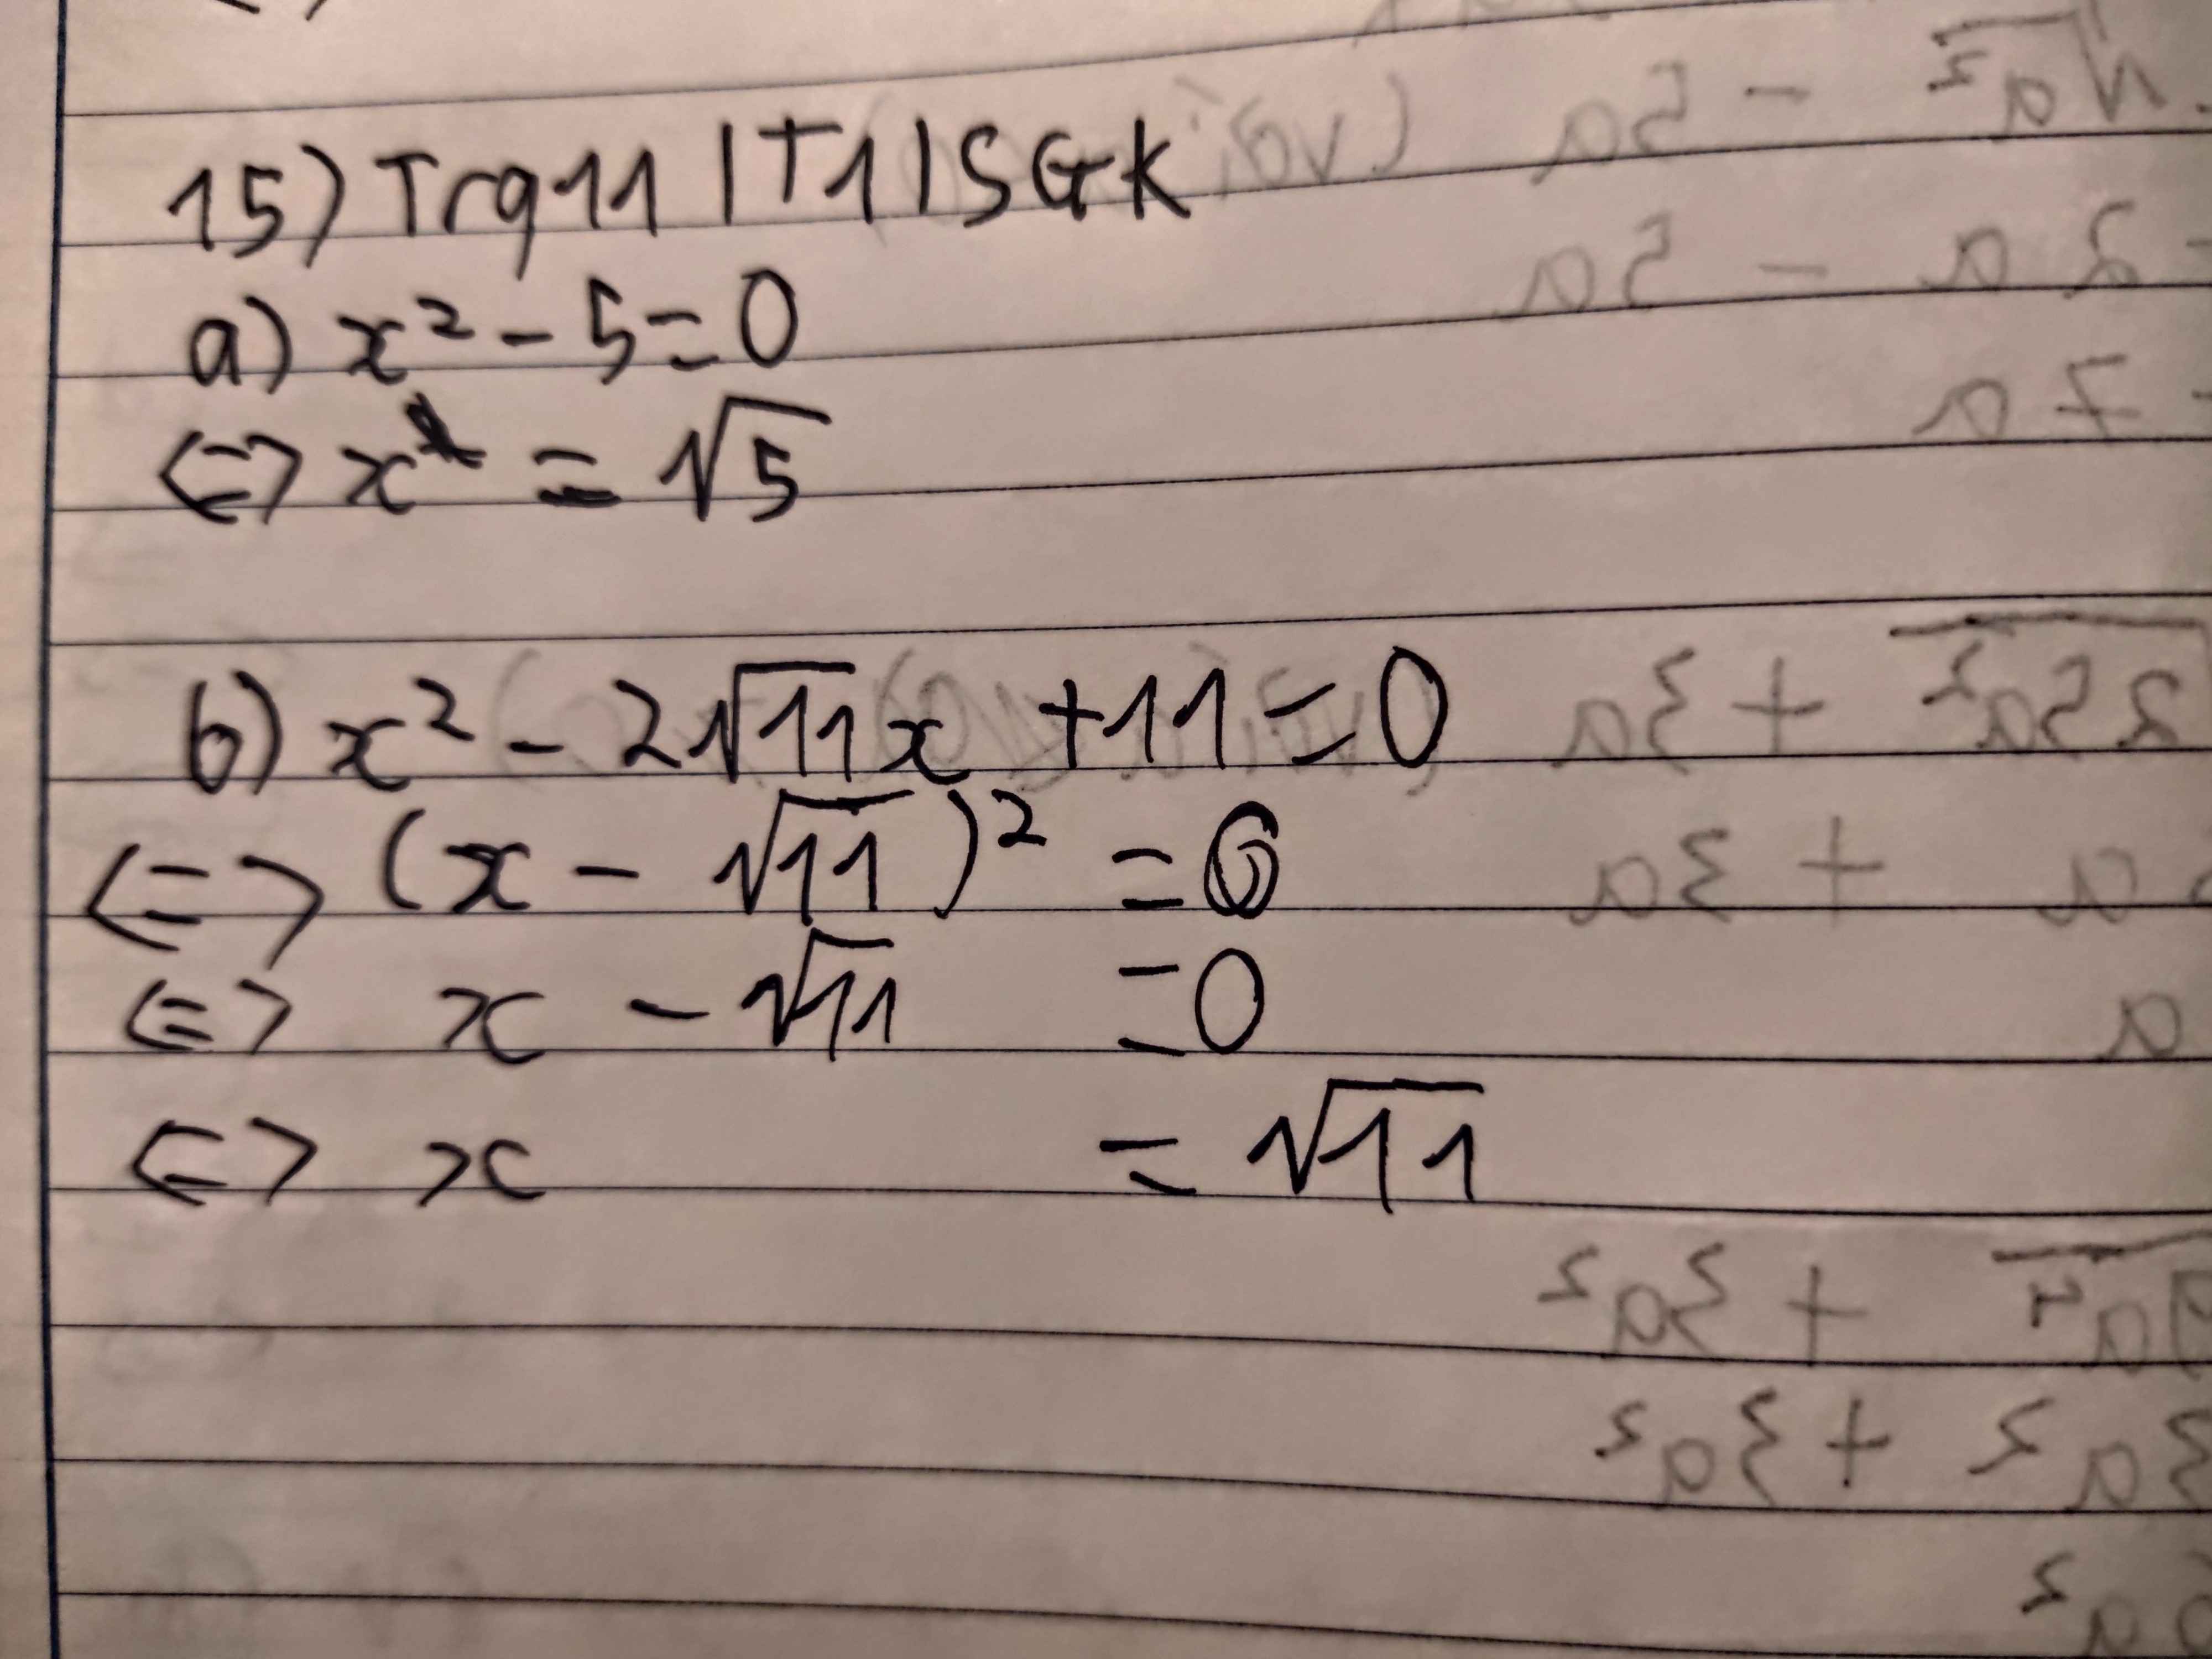 15) Trg11 |T1|SGK
a) x² - 5 = 0
<=> x = √5
b) x² - 2√11x + 11 = 0
<=> (x - √11)² = 0
<=> x - √11 = 0
<=> x = √11